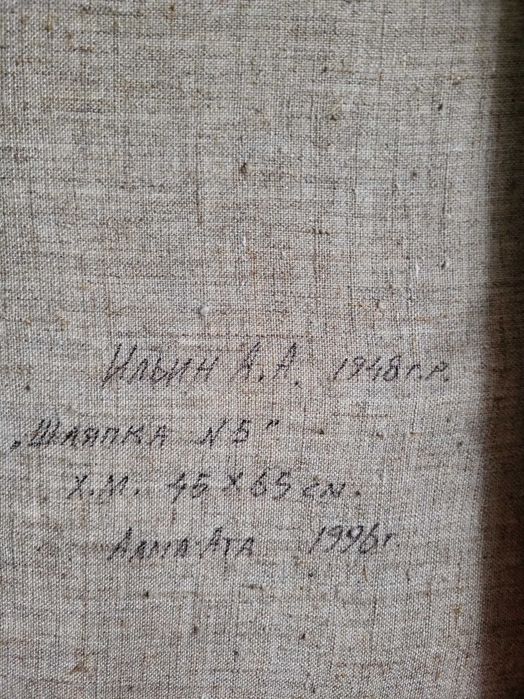 Ильин А.А. 1948г.р.
„Шляпка N5"
Х.М. 45 х 65 см.
Алма-Ата 1996г